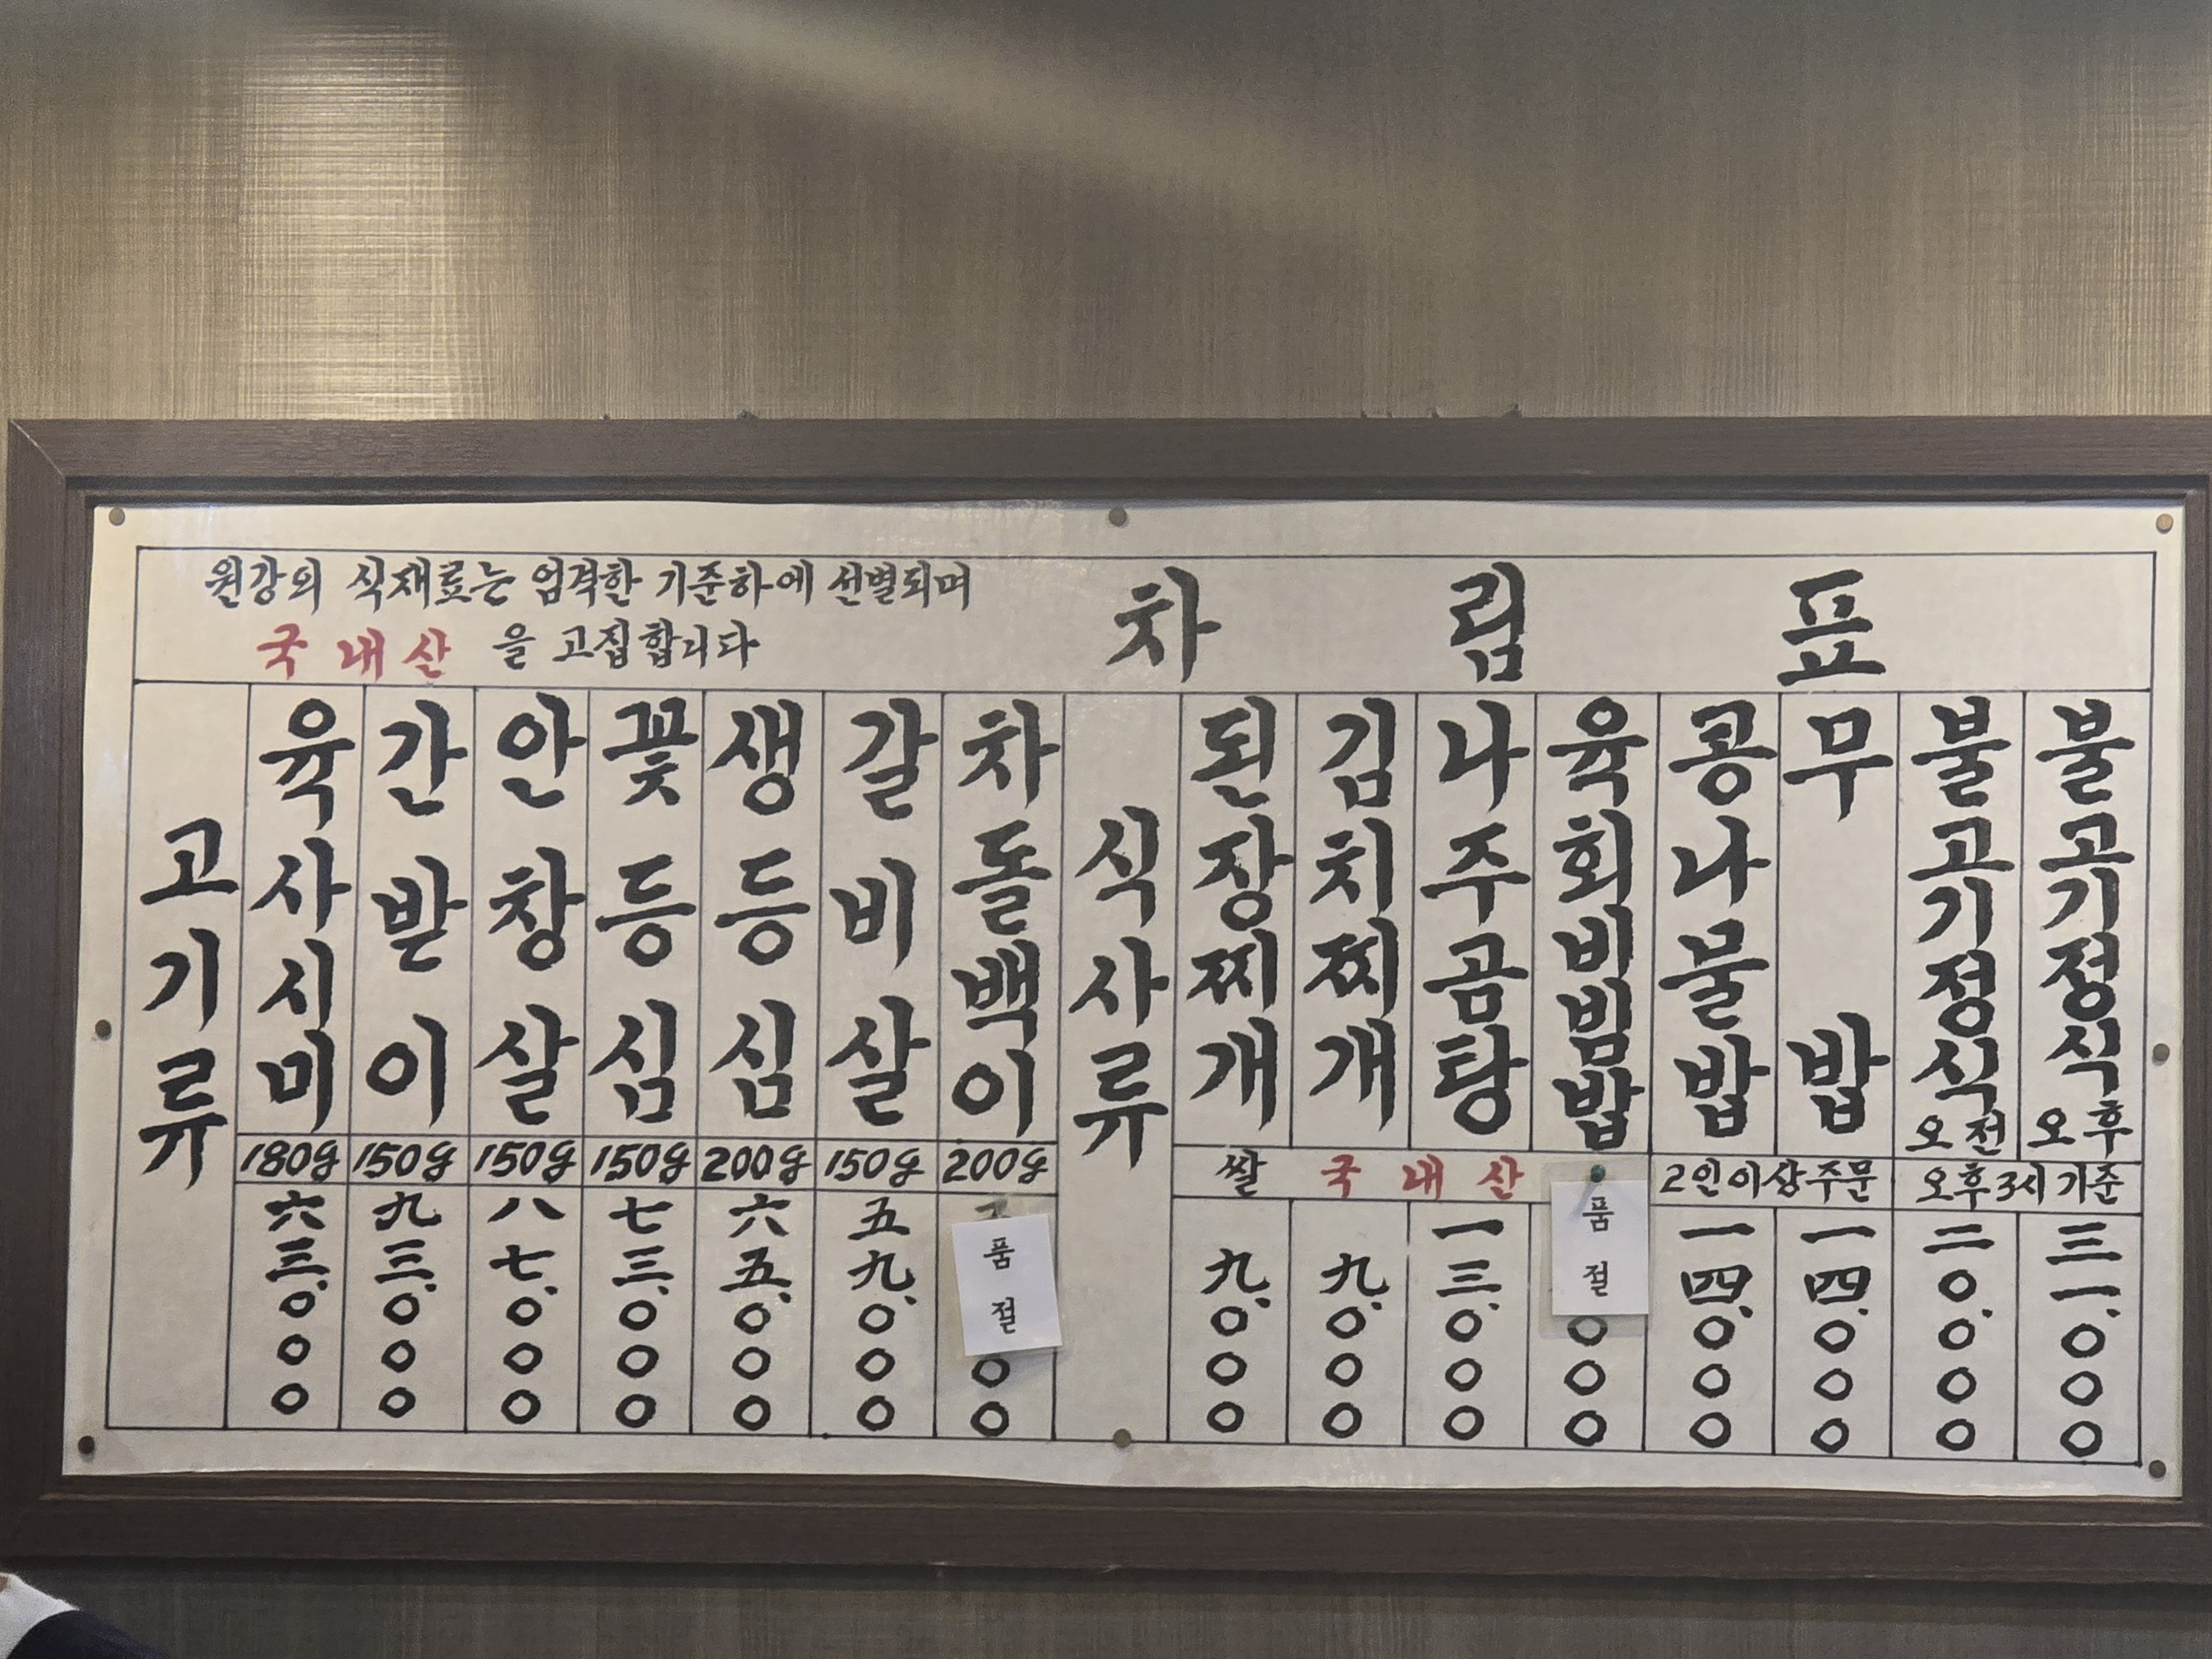 원강의 식재료는 엄격한 기준하에 선별되며
국내산 을 고집합니다
차림표
고기류
육사시미 180g 六三,000
간받이 150g 九三,000
안창살 150g 八七,000
꽃등심 150g 七三,000
생등심 200g 六五,000
갈비살 150g 五九,000
차돌백이 200g 품절 00
식사류
된장찌개 九,000
김치찌개 九,000
나주곰탕 一三,000
육회비빔밥 품절 000
쌀 국내산
콩나물밥 一四,000
무밥 一四,000
2인이상주문
불고기정식 오전 二0,000
불고기정식 오후 三一,000
오후3시기준